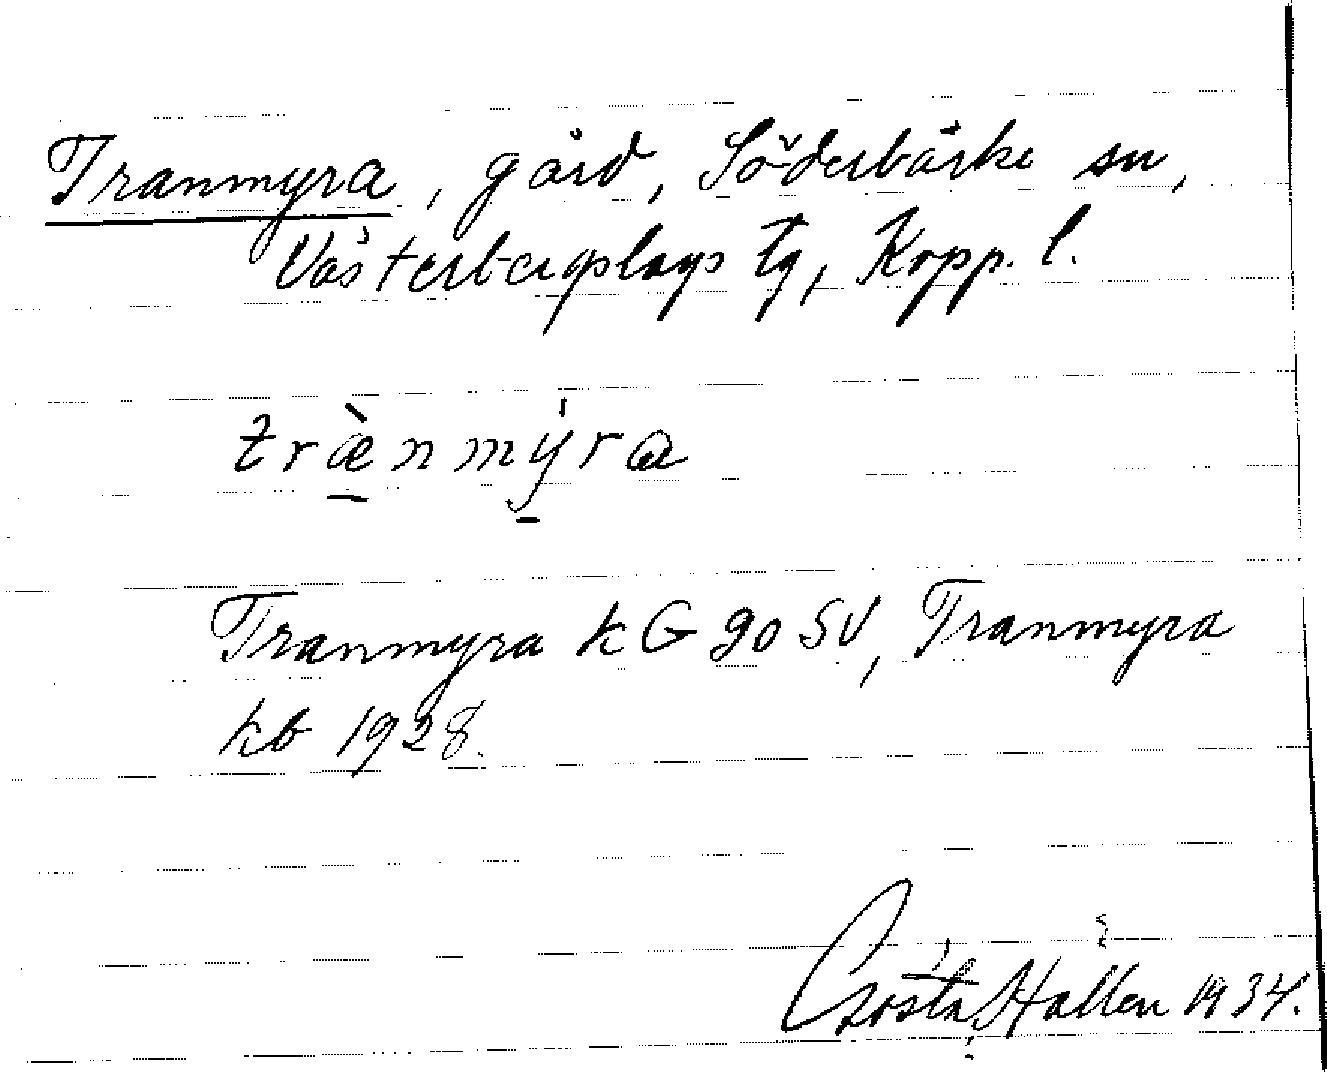 Tranmyra, gård, Söderbärke sn,
Västerbergslags tg, Kopp. l.
træ̀nmýra
Tranmyra kG 90 SV, Tranmyra
kb 1928.
Gösta Hallen 1934.